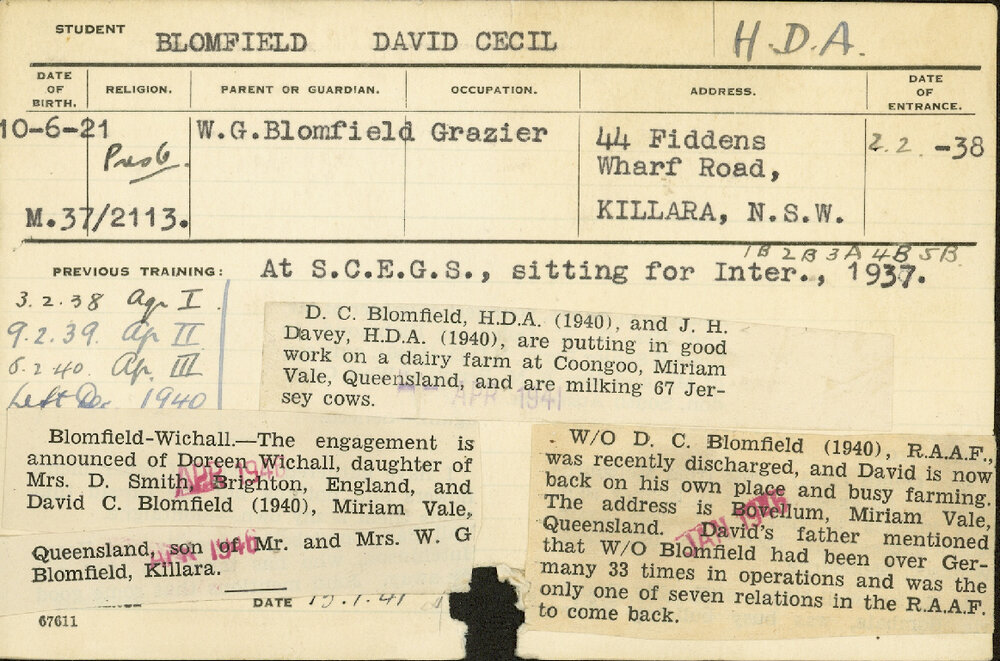 STUDENT BLOMFIELD DAVID CECIL H.D.A.
DATE OF BIRTH. RELIGION. PARENT OR GUARDIAN. OCCUPATION. ADDRESS. DATE OF ENTRANCE.
10-6-21 Presb. W.G.Blomfield Grazier 44 Fiddens 2.2. -38
Wharf Road,
M.37/2113. KILLARA, N.S.W.
1B 2B 3A 4B 5B
PREVIOUS TRAINING: At S.C.E.G.S., sitting for Inter., 1937.
3.2.38 Ag I
9.2.39. Ag II
6.2.40. Ag. III
Left Dec 1940
D. C. Blomfield, H.D.A. (1940), and J. H.
Davey, H.D.A. (1940), are putting in good
work on a dairy farm at Coongoo, Miriam
Vale, Queensland, and are milking 67 Jer-
sey cows.
APR 1941
Blomfield-Wichall.—The engagement is
announced of Doreen Wichall, daughter of
Mrs. D. Smith, Brighton, England, and
David C. Blomfield (1940), Miriam Vale,
APR 1946
Queensland, son of Mr. and Mrs. W. G
Blomfield, Killara.
APR 1946
W/O D. C. Blomfield (1940), R.A.A.F.,
was recently discharged, and David is now
back on his own place and busy farming.
The address is Bovellum, Miriam Vale,
Queensland. David's father mentioned
that W/O Blomfield had been over Ger-
many 33 times in operations and was the
only one of seven relations in the R.A.A.F.
to come back.
JAN 1946
DATE
67611